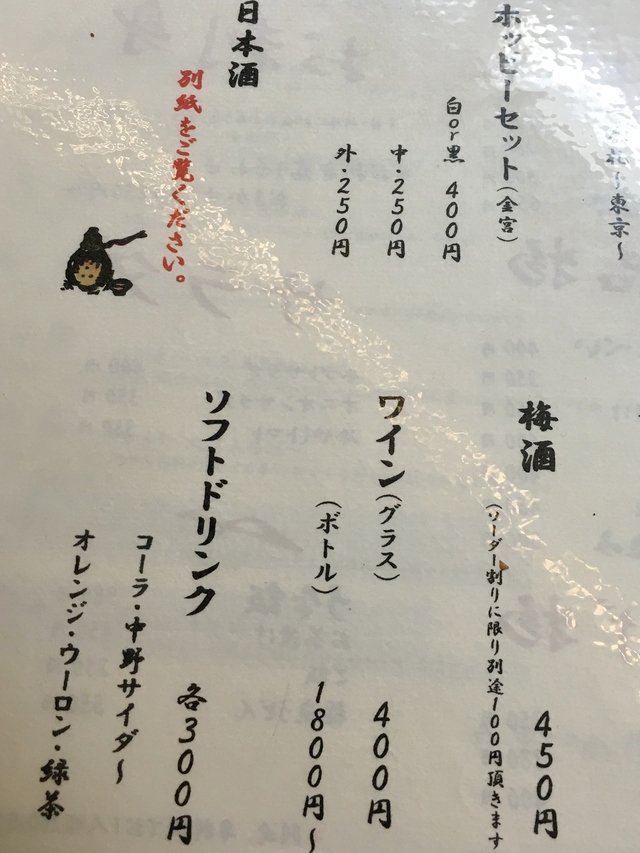 ～東京～
ホッピーセット(金宮)
白or黒 400円
中・250円
外・250円
日本酒
別紙をご覧ください。
梅酒 450円
(ソーダー割りに限り別途100円頂きます
ワイン(グラス) 400円
(ボトル) 1800円～
ソフトドリンク 各300円
コーラ・中野サイダ～
オレンジ・ウーロン・緑茶